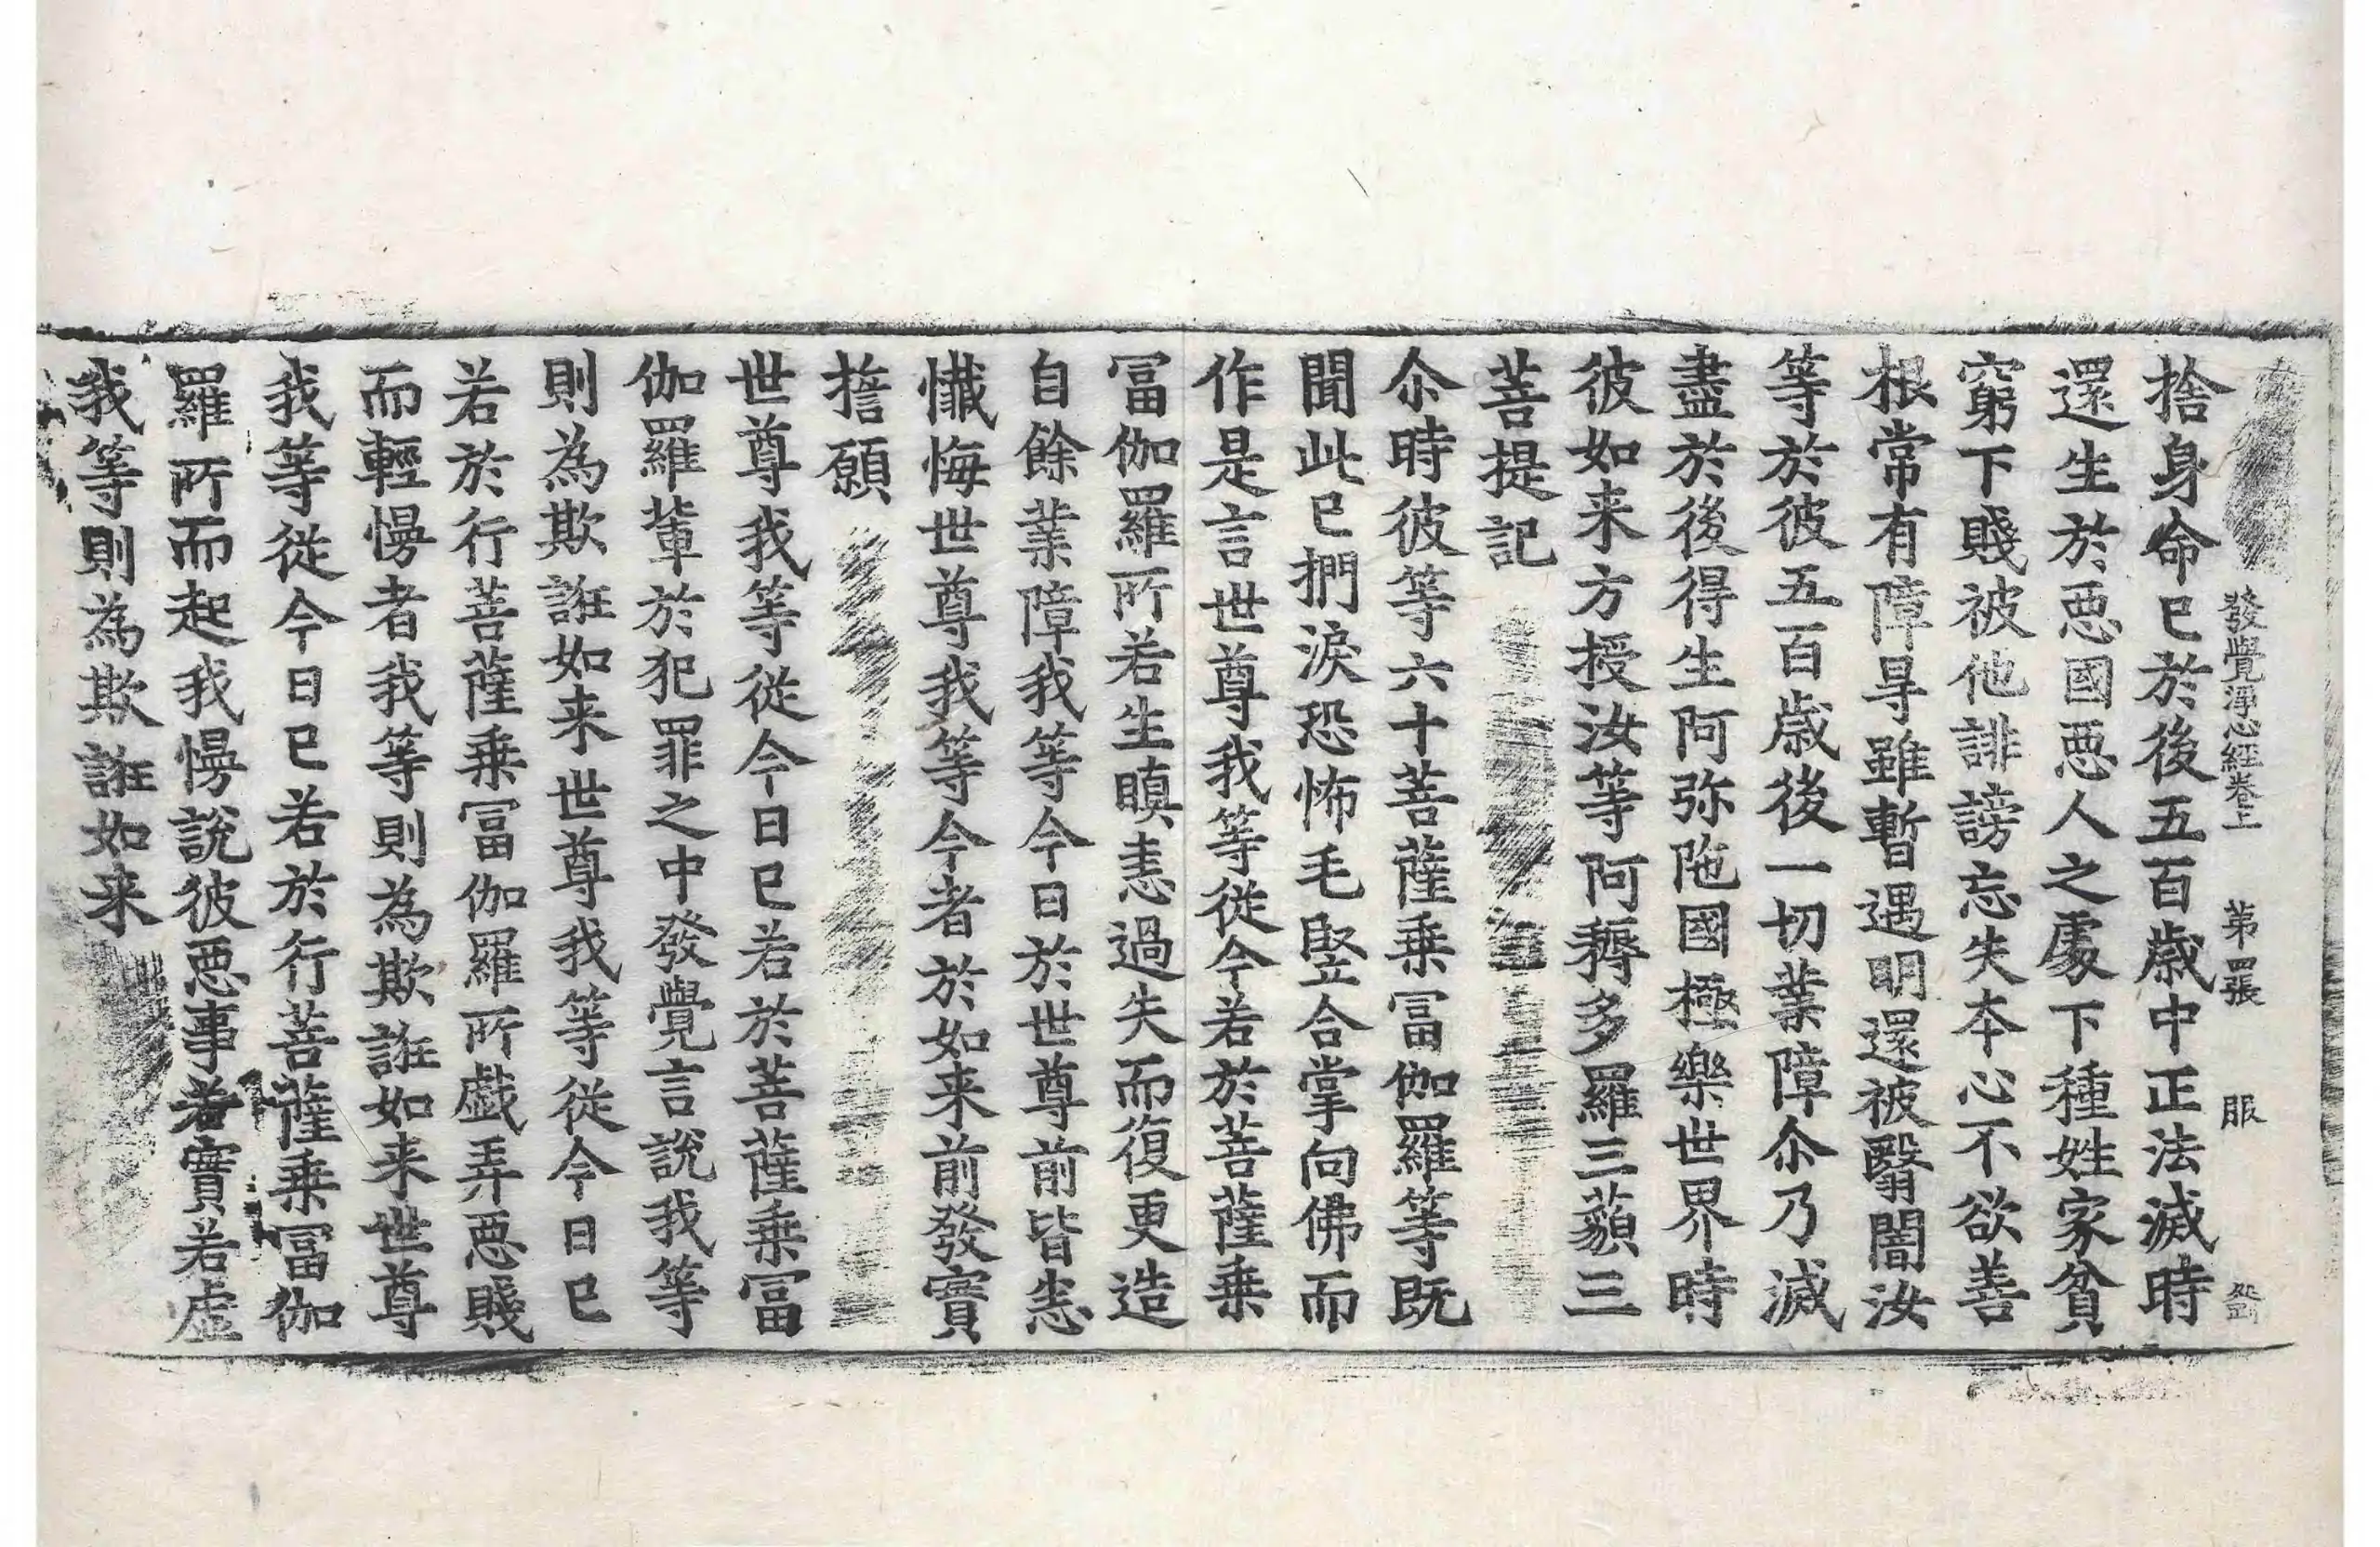 發覺淨心經卷上 第四張 服
捨身命已於後五百歲中正法滅時
還生於惡國惡人之處下種姓家貧
窮下賤被他誹謗忘失本心不欲善
根常有障㝵雖暫遇明還被翳闇汝
等於彼五百歲後一切業障尒乃滅
盡於後得生阿弥陁國極樂世界時
彼如来方授汝等阿耨多羅三藐三
菩提記
尒時彼等六十菩薩乗冨伽羅等既
聞此已捫淚恐怖毛竪合掌向佛而
作是言世尊我等従今若於菩薩乗
冨伽羅所若生瞋恚過失而復更造
自餘業障我等今日於世尊前皆悉
懺悔世尊我等今者於如来前發實
誓願
世尊我等従今日已若於菩薩乗冨
伽羅輩於犯罪之中發覺言說我等
則為欺誑如来世尊我等従今日已
若於行菩薩乗冨伽羅所戲弄惡賤
而輕慢者我等則為欺誑如来世尊
我等従今日已若於行菩薩乗冨伽
羅所而起我慢說彼惡事若實若虛
我等則為欺誑如来